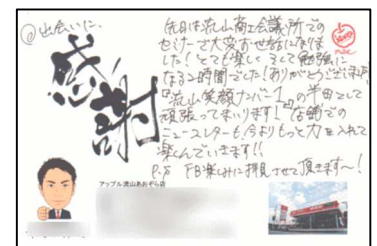 @出会いに、
感謝
先日は流山商工会議所での
セミナーで大変お世話になりま
した！とても楽しく、そして勉強に
なる2時間でした！ありがとうございます。
『流山笑顔ナンバー1』の半田として
頑張ってまいります！店舗での
ニュースレターも、今よりもっと力を入れて
楽しんでいきます！！
P.S FB楽しみに拝見させて頂きます〜！
アップル流山あおぞら店